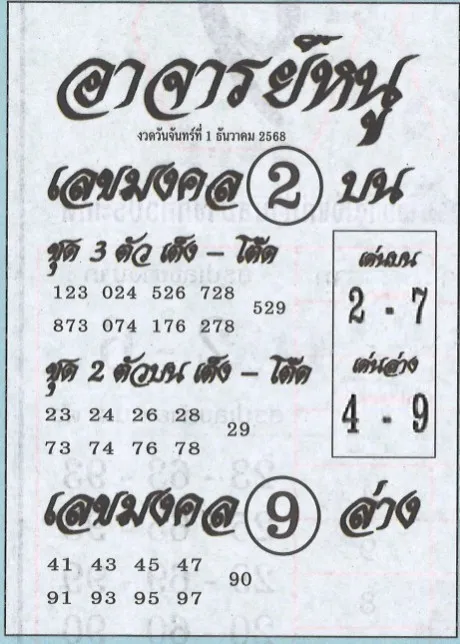 อาจารย์หนู
งวดวันจันทร์ที่ 1 ธันวาคม 2568
เลขมงคล 2 บน
ชุด 3 ตัว เต็ง – โต๊ด
123 024 526 728
529
873 074 176 278
เด่นบน
2 - 7
เด่นล่าง
4 - 9
ชุด 2 ตัวบน เต็ง – โต๊ด
23 24 26 28
29
73 74 76 78
เลขมงคล 9 ล่าง
41 43 45 47
90
91 93 95 97